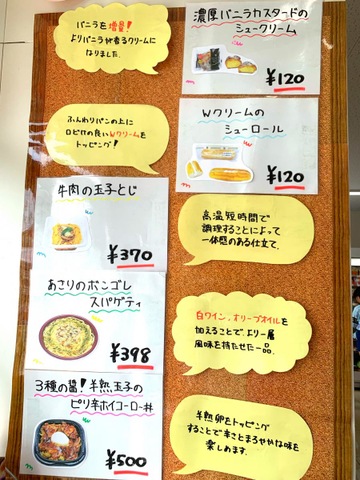 バニラを増量!
よりバニラが香るクリームに
なりました.
濃厚バニラカスタードの
シュークリーム
¥120
ふんわりパンの上に
口どけの良いWクリームを
トッピング!
Wクリームの
シューロール
¥120
牛肉の玉子とじ
¥370
高温短時間で
調理することによって
一体感のある仕立て.
あさりのボンゴレ
スパゲティ
¥398
白ワイン,オリーブオイルを
加えることで,より一層
風味を持たせた一品.
3種の醤!半熟玉子の
ピリ辛ホイコーロー丼
¥500
半熟卵をトッピング
することで辛さとまろやかな味を
楽しめます.